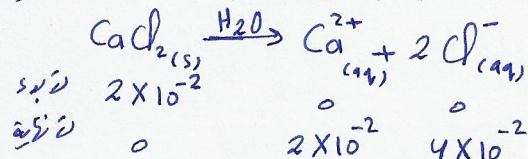 CaCl₂(s) H₂O→ Ca²⁺(aq) + 2 Cl⁻(aq)
ن بدء 2×10⁻² 0 0
ن نهاية 0 2×10⁻² 4×10⁻²